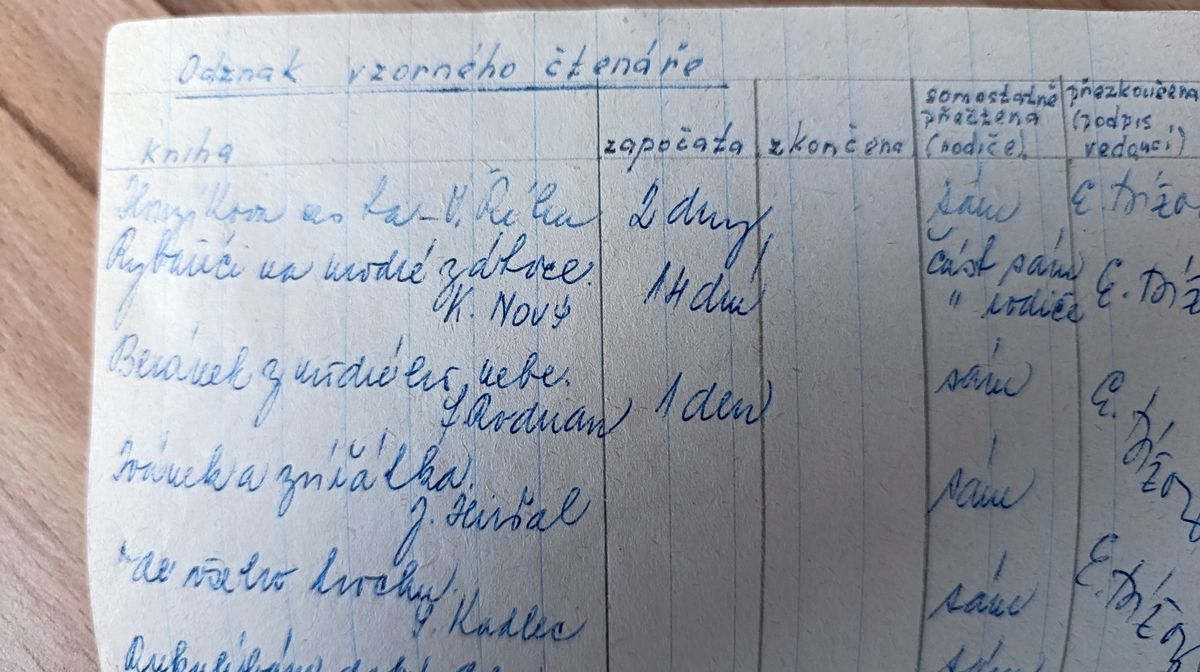 Odznak vzorného čtenáře
kniha započata zkončena somostatně přečtena (rodiče) přezkoučena (podpis vedoucí)
Honzíkova cesta - V. Říha 2 dny sám E. Bíža
Rybáříci na modré zátoce. 14 dní část sám E. Bíž
K. Nový " rodiče
Beránek z modrého nebe. 1 den sám E.
J. Brdečka
Ivánek a zvířátka.
J. Hiršal sám
Ze všeho trochu.
J. Kadlec sám E.